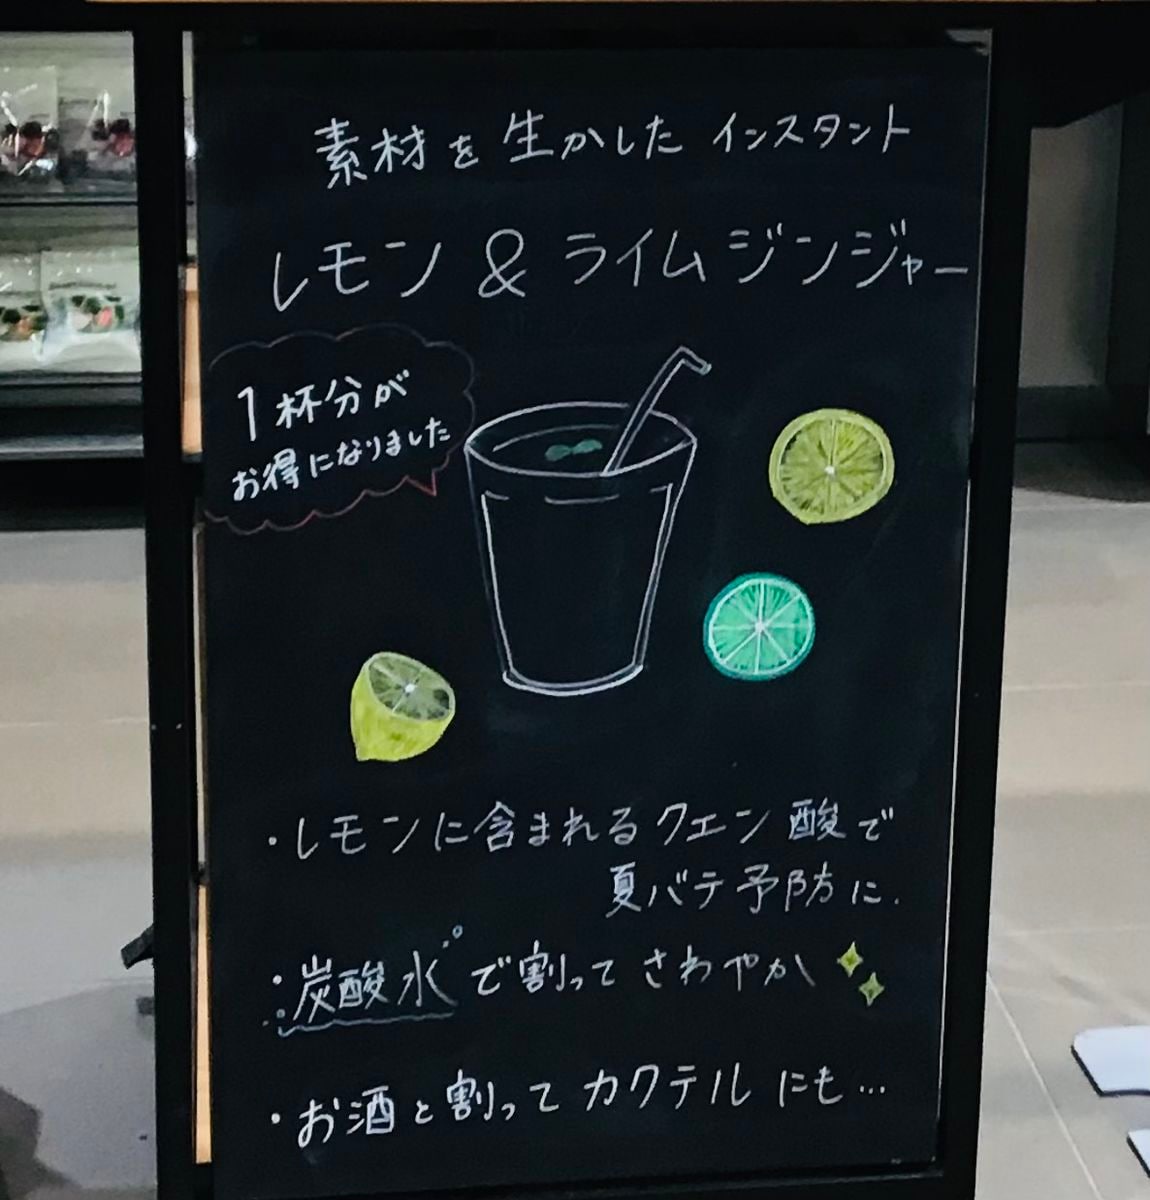 素材を生かした インスタント
レモン & ライムジンジャー
1杯分が
お得になりました
・レモンに含まれるクエン酸で
夏バテ予防に.
・炭酸水で割ってさわやか
・お酒と割ってカクテルにも…